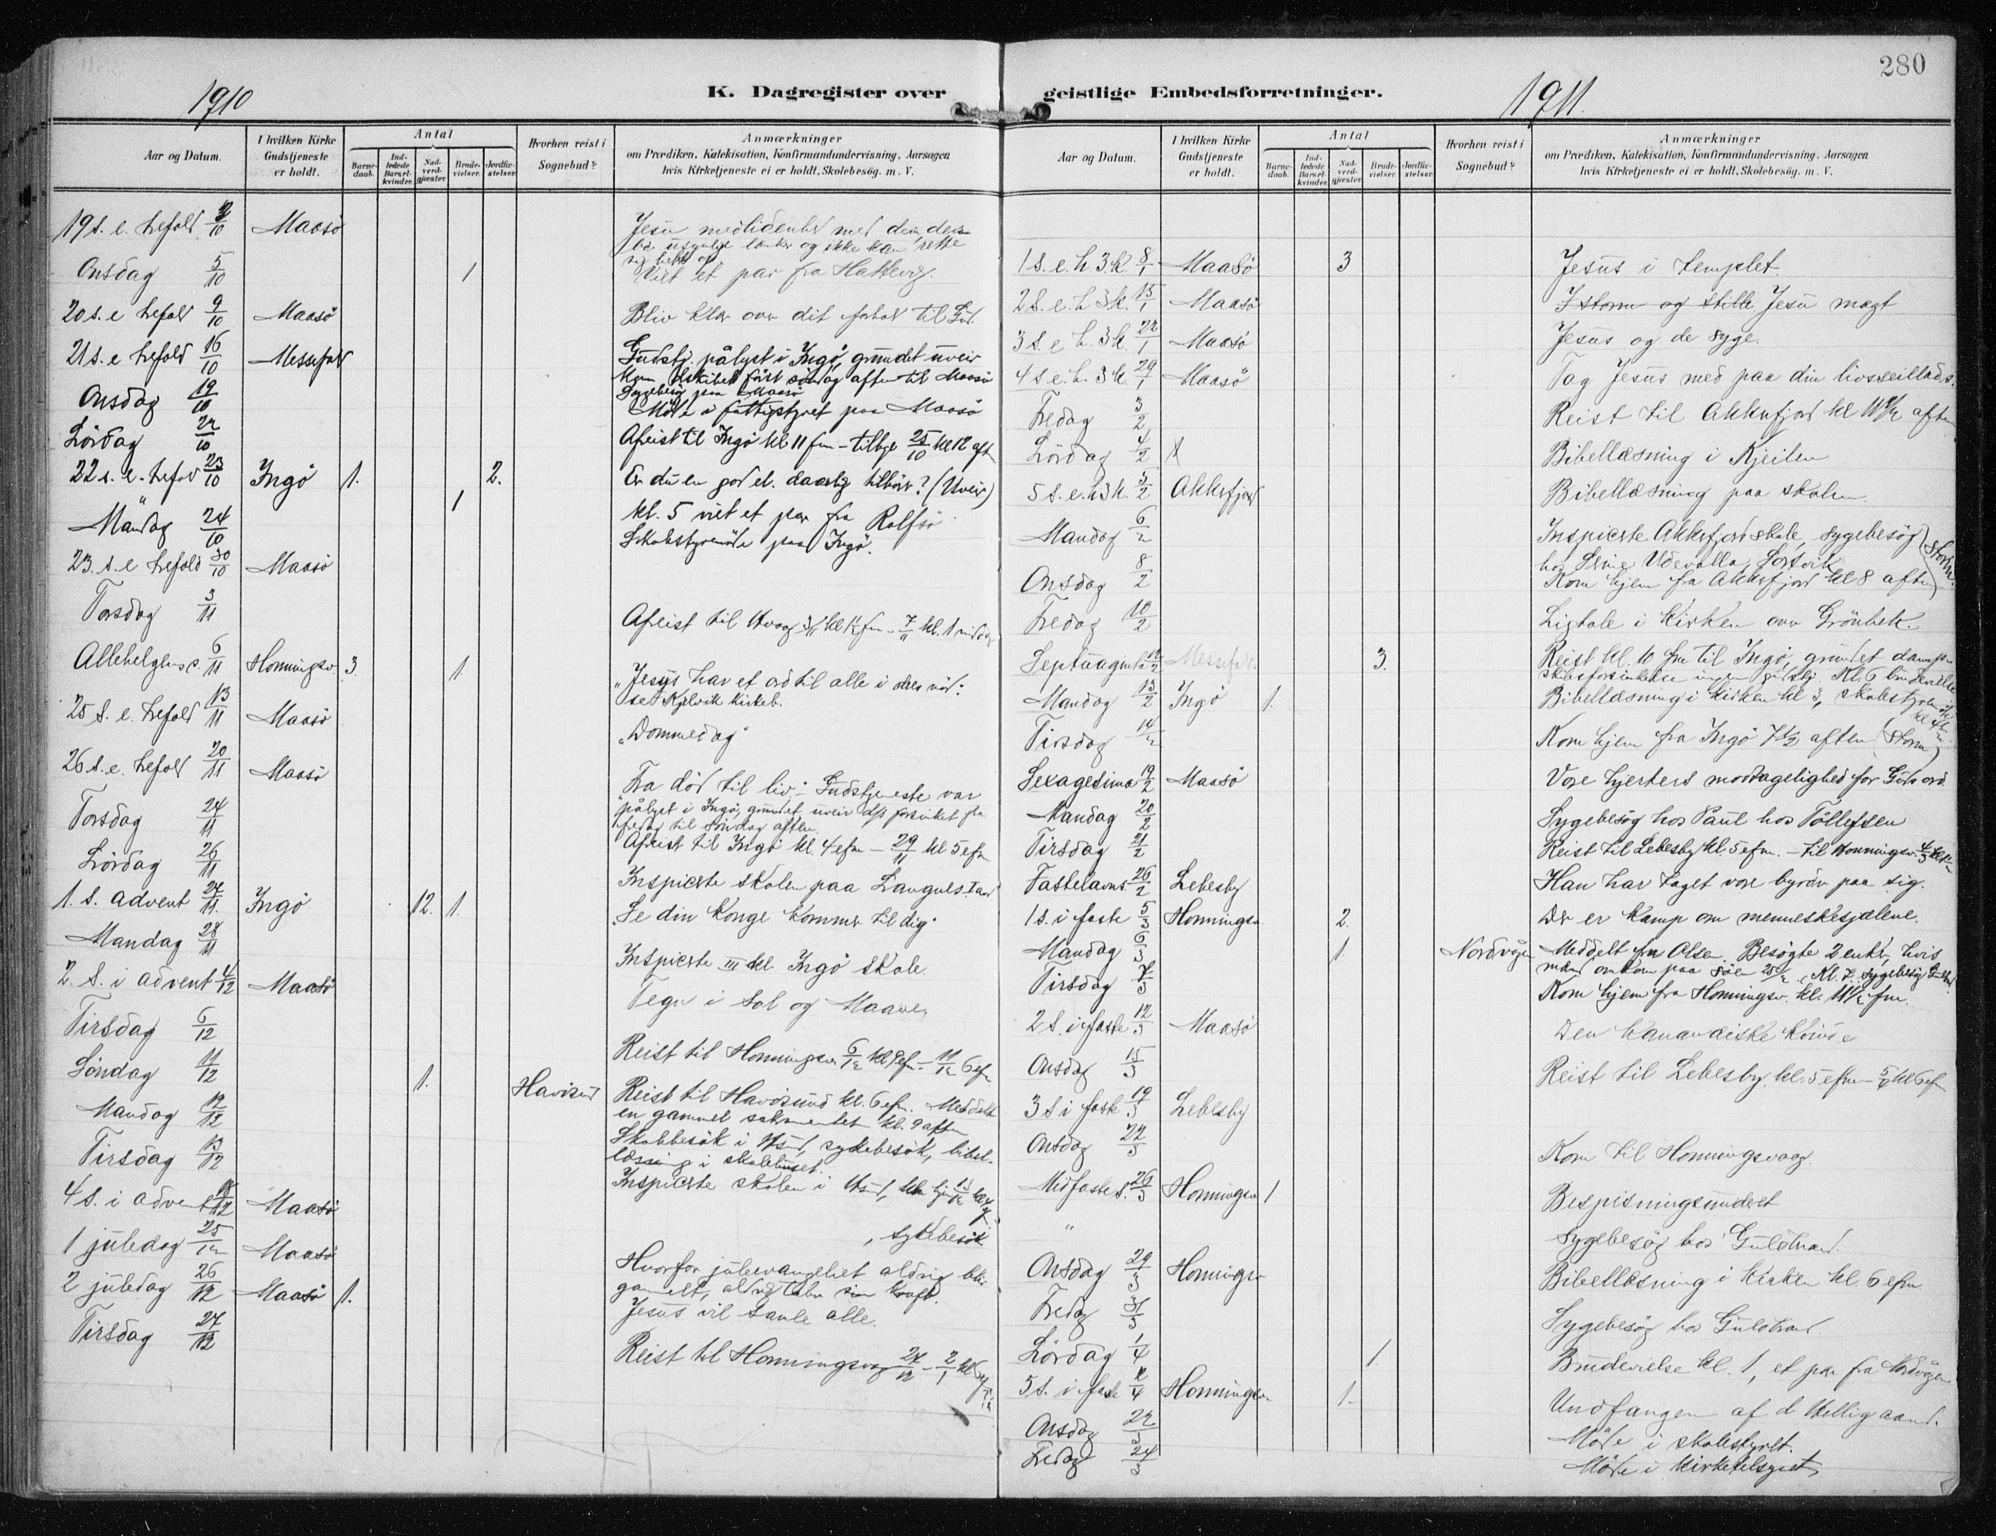 280
1910
K. Dagregister over geistlige Embedsforretninger.
1911.
Aar og Datum.
I hvilken Kirke Gudstjeneste er holdt.
Antal
Barne-daab.
Ind-ledede Barsel-kvinder.
Nad-verd-gjæster.
Brude-vielser.
Jordfæ-stelser.
Hvorhen reist i Sognebud?
Anmærkninger
om Prædiken, Katekisation, Konfirmandundervisning, Aarsagen
hvis Kirketjeneste ei er holdt, Skolebesøg. m. V.
19 s. e. trefold 2/10 Maasø Jesu medlidenhed med dem, der
usynlige lænker og ikke kan rette
sig helt op
Onsdag 5/10 1 Viet et par fra Hattevig.
20 s. e. trefold 9/10 Maasø Bliv klar over dit forhold til Gud.
21 s. e. trefold 16/10 Messefald Gudstj. pålyst i Ingø, grundet uveir
først søndag aften til Maasø
Onsdag 19/10 Sygebesøg paa Maasø
Møde i fattigstyret paa Maasø
Lördag 22/10 Afreist til Ingø kl 11 fm - tilbage 25/10 kl 12 aft.
22 s. e. trefold 23/10 Ingø 1. 2. Er du en god el. daarlig tilhörer? (Uveir)
Mandag 24/10 1 kl. 5 viet et par fra Rolfsø
Skolestyremöde paa Ingø.
23. s. e. trefold 30/10 Maasø
Torsdag 3/11 Afreist til 3/11 kl fm - 7/11 kl. 1 middag
Allehelgens s. 6/11 Honningsv. 3 1. "Jesus har et ord til alle i deres nöd"
se Kjelvik kirkeb.
25 s. e. trefold 13/11 Maasø "Dommedag"
26 s. e. trefold 20/11 Maasø "Fra död til liv". Gudstjeneste var
pålyst i Ingø, grundet uveir dfs forsinket fra
fredag til Söndag aften.
Torsdag 24/11 Afreist til Ingø kl. 4 efm - 29/11 kl 5 efm
Lördag 26/11 Inspicerte skolen paa
1. s. advent 27/11 Ingø 12. 1. "Se din konge kommer til dig"
Mandag 28/11 Inspicerte III kl Ingø skole.
2. s. i advent 4/12 Maasø Tegn i Sol og Maane
Tirsdag 6/12 Reist til Honningsv 6/12 kl 9 efm. - 11/12 6 efm
Söndag 11/12 1. Havösund Reist til Havösund kl. 6 efm. Meddelt
en gammel sakramentet kl. 9 aften
Mandag 12/12 Skolebesök i Hsund, sykebesök, bibel-
læsning i skolehuset.
Tirsdag 13/12 Inspicerte skolen i Hsund,
, sykebesök
4 s. i advent 18/12 Maasø
1 juledag 25/12 Maasø Hvorfor juleevangeliet aldrig blir
gammelt, aldrig taber sin kraft.
2 juledag 26/12 Maasø 1. Jesus vil samle alle.
Tirsdag 27/12 Reist til Honningsvag 27/12 - 2/1
Aar og Datum.
I hvilken Kirke Gudstjeneste er holdt.
Antal
Barne-daab.
Ind-ledede Barsel-kvinder.
Nad-verd-gjæster.
Brude-vielser.
Jordfæ-stelser.
Hvorhen reist i Sognebud?
Anmærkninger
om Prædiken, Katekisation, Konfirmandundervisning, Aarsagen
hvis Kirketjeneste ei er holdt, Skolebesøg. m. V.
1 s. e. h. 3. k. 8/1 Maasø 3 Jesus i templet.
2 s. e. h. 3 k. 15/1 Maasø I storm og stille Jesu magt
3 s. e. h. 3 k. 22/1 Maasø Jesus og de syge.
4 s. e. h. 3 k. 29/1 Maasø Tag Jesus med paa din livsseillads.
Fredag 3/2 Reist til Akkefjord kl 11 1/2 aften
Lördag 4/2 Bibellæsning i Kjeilen
5 s. e. h. 3 k. 5/2 Akkefjord Bibellæsning paa skolen
Mandag 6/2 Inspicerte Akkefjord skole, sygebesög
hos Udevalla,
(storm)
Onsdag 8/2 Kom hjem fra Akkefjord kl 8 aften
Fredag 10/2 Ligtale i kirken over Grönbek.
Septuagesima 12/2 Messefald 3. Reist kl. 10 fm til Ingø, grundet damp-
skibsforsinkelse ingen gudstj. Kl. 6 brudevielse
Mandag 13/2 Ingø 1. Bibellæsning i kirken kl 3, skolestyremöde
kl 4 1/2
Tirsdag 14/2 Kom hjem fra Ingø 7 1/2 aften (storm)
Sexagesima 19/2 Maasø Vore hjerters modtagelighed for Guds ord
Mandag 20/2 Sygebesög hos Paul hos Tollefsen
Tirsdag 21/2 Reist til Lebesby kl 5 efm. - til Honningsv. 4/3
Fastelavns 26/2 Lebesby Han har taget vore byrder paa sig.
1 s. i faste 5/3 Honningsv 2. Der er kamp om menneskesjælene.
Mandag 6/3 1. Nordvågen Meddelt fru Olsen. Besögte 2 enker, hvis
mænd omkom paa söen 25/2, Kl. 7 sygebesög
Tirsdag 7/3 Kom hjem fra Honningsv. kl. 11 1/2 fm.
2 s. i faste 12/3 Maasø Den kananæiske kvinde
Onsdag 15/3 Reist til Lebesby kl. 5 efm - 5/4 kl 6 efm
3 s i faste 19/3 Lebesby
Onsdag 22/3 Kom til Honningsvaag.
Midfaste s. 26/3 Honningsv 1 Bespisningsunderet
" Sygebesög hos Guldbrand.
Onsdag 29/3 Honningsv Bibellæsning i kirken kl. 6 efm.
Fredag 31/3 Sygebesög hos Guldbrand.
Lördag 1/4 1. Brudevielse kl. 1, et par fra Nordvågen
5 s. i faste 2/4 Honningsv 1. Undfangen af d Hellig aand.
Onsdag 22/3 Möde i skolestyret.
Fredag 24/3 Möde i Kirketilsynet